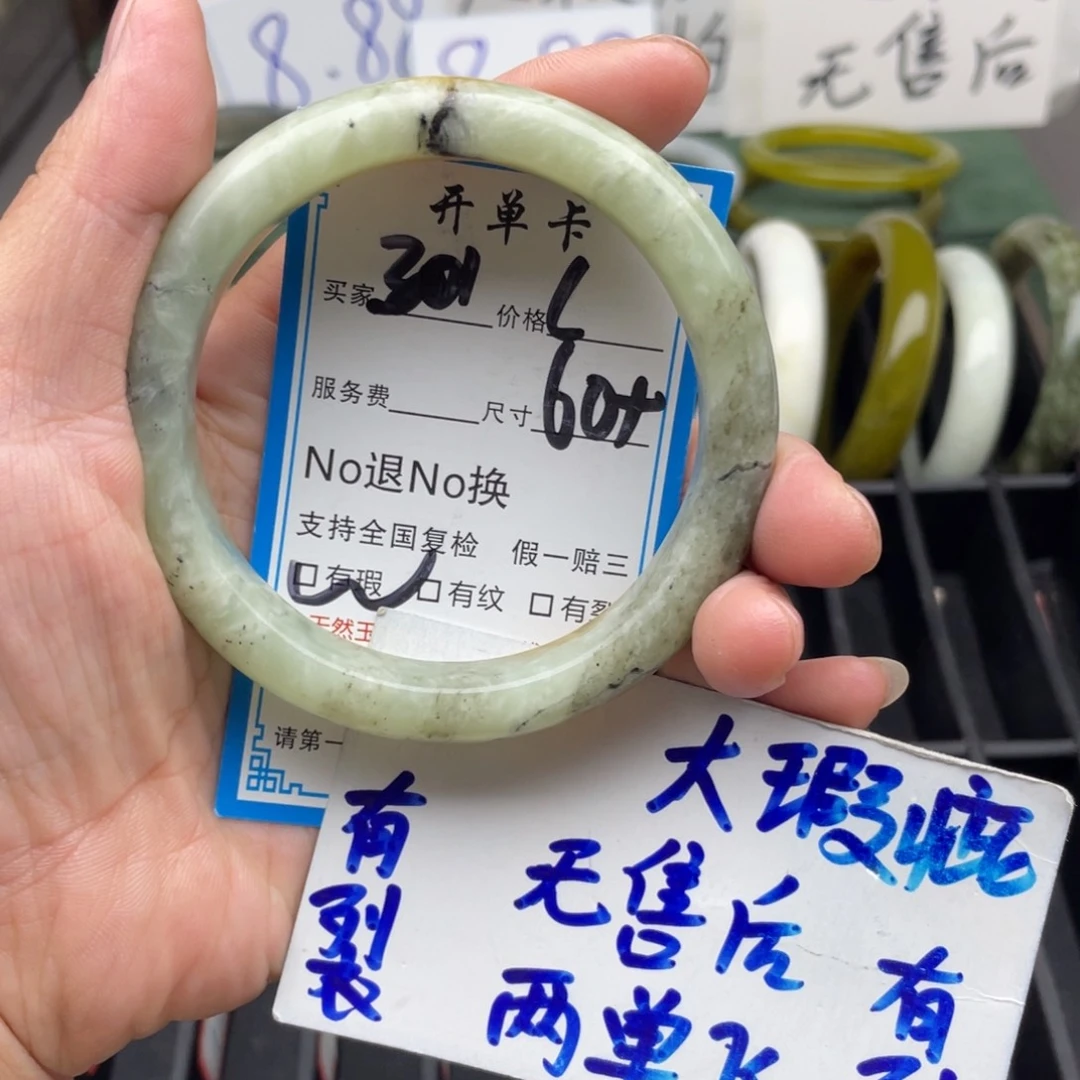 8.8
无售后
开单卡
买家 301 价格
服务费 尺寸 60+
No退No换
支持全国复检 假一赔三
□有瑕 □有纹 □有裂
天然玉
请第一
大瑕疵
有裂
无售后
有
两单飞